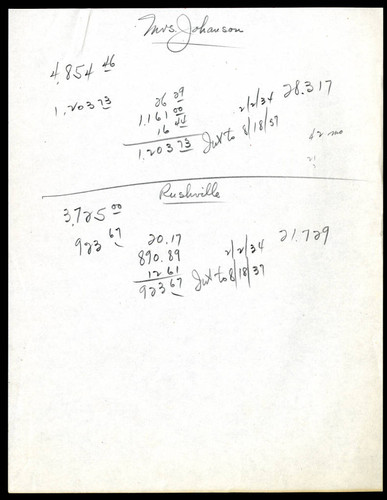 Mrs. Johanson
4,854 46
1,203 73
26 29
1,161 00
16 44
1,203 73
2/2/34 28.317
Int to 8/18/37
42 mo
Rushville
3,725 00
923 67
20.17
890.89
12 61
923 67
2/2/34 21.729
Int to 8/18/37